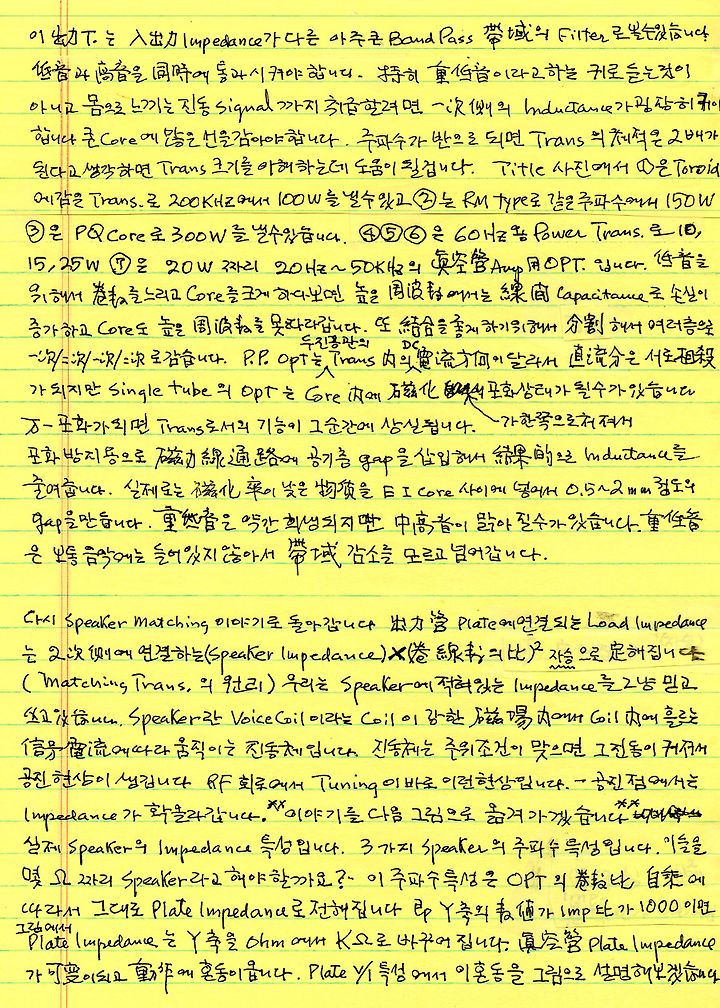 이 出力 T. 는 入出力 Impedance가 다른 아주 큰 Band Pass 帶域의 Filter로 볼수있습니다
低音과 高音을 同時에 통과시켜야 합니다. 特히 重低音이라고하는 귀로 듣는것이
아니고 몸으로 느끼는 진동 Signal 까지 취급할려면 一次側의 Inductance가 굉장히 커야
합니다 큰 Core에 많은 선을 감아야합니다. 주파수가 반으로 되면 Trans의 체적은 2배가
된다고 생각하면 Trans 크기를 이해하는데 도움이 될겁니다. Title 사진에서 ①은 Toroid
에감은 Trans.로 200KHz에서 100W를 낼수있고 ②는 RM type로 같은 주파수에서 150W
③은 PQ Core로 300W를 낼수있습니다. ④⑤⑥은 60Hz용 Power Trans.로 10,
15, 25W ⑦은 20W 짜리 20Hz~50KHz의 眞空管 Amp用 OPT. 입니다. 低音을
위해서 卷數를 느리고 Core를 크게 하다보면 높은 周波數에서는 線間 Capacitance로 손실이
증가하고 Core도 높은 周波數를 못따라갑니다. 또 結合을 좋게하기위해서 分割해서 여러층으로
一次/二次/一次/二次로 감습니다. P.P. OPT는 두진공관의 Trans 內의 DC 電流方向이 달라서 直流分은 서로 相殺
가 되지만 Single tube의 OPT는 Core 內에 磁化가 한쪽으로 처져서 포화상태가 될수가 있습니다
万一 포화가되면 Trans로서의 기능이 그순간에 상실됩니다.
포화 방지용으로 磁力線通路에 공기층 gap을 삽입해서 結果的으로 Inductance를
줄여줍니다. 실제로는 磁化率이 낮은 物質을 E I core 사이에 넣어서 0.5~2mm 정도의
gap을 만듭니다. 重低音은 약간 희생되지만 中高音이 맑아질수가 있습니다. 重低音
은 보통음악에는 들어있지않아서 帶域 감소를 모르고 넘어갑니다.
다시 Speaker Matching 이야기로 돌아갑니다 出力管 Plate에 연결되는 Load Impedance
는 2次側에 연결하는 (Speaker Impedance) X (卷線數의 比)² 자승으로 定해집니다
(Matching Trans. 의 원리) 우리는 Speaker에 적혀있는 Impedance를 그냥 믿고
쓰고있습니다. Speaker란 Voice Coil이라는 Coil이 강한 磁場內에서 Coil 內에 흐르는
信号電流에따라 움직이는 진동체입니다. 진동체는 주위조건이 맞으면 그진동이 커져서
공진현상이 생깁니다 RF 회로에서 Tuning이 바로 이런현상입니다. — 공진점에서는
Impedance가 확올라갑니다. ** 이야기를 다음 그림으로 옮겨가겠습니다 **
실제 Speaker의 Impedance 특성입니다. 3가지 Speaker의 주파수특성입니다. 이들을
몇 Ω 짜리 Speaker라고 해야할까요? 이 주파수특성은 OPT의 卷數比 自乘에
따라서 그대로 Plate Impedance로 전해집니다 즉 Y축의 數値가 Imp 比가 1000이면
그림에서 Plate Impedance는 Y축을 Ohm에서 KΩ로 바꾸어집니다. 眞空管 Plate Impedance
가 可變이되고 動作에 혼동이옵니다. Plate V/I 특성에서 이혼동을 그림으로 설명해보겠습니다